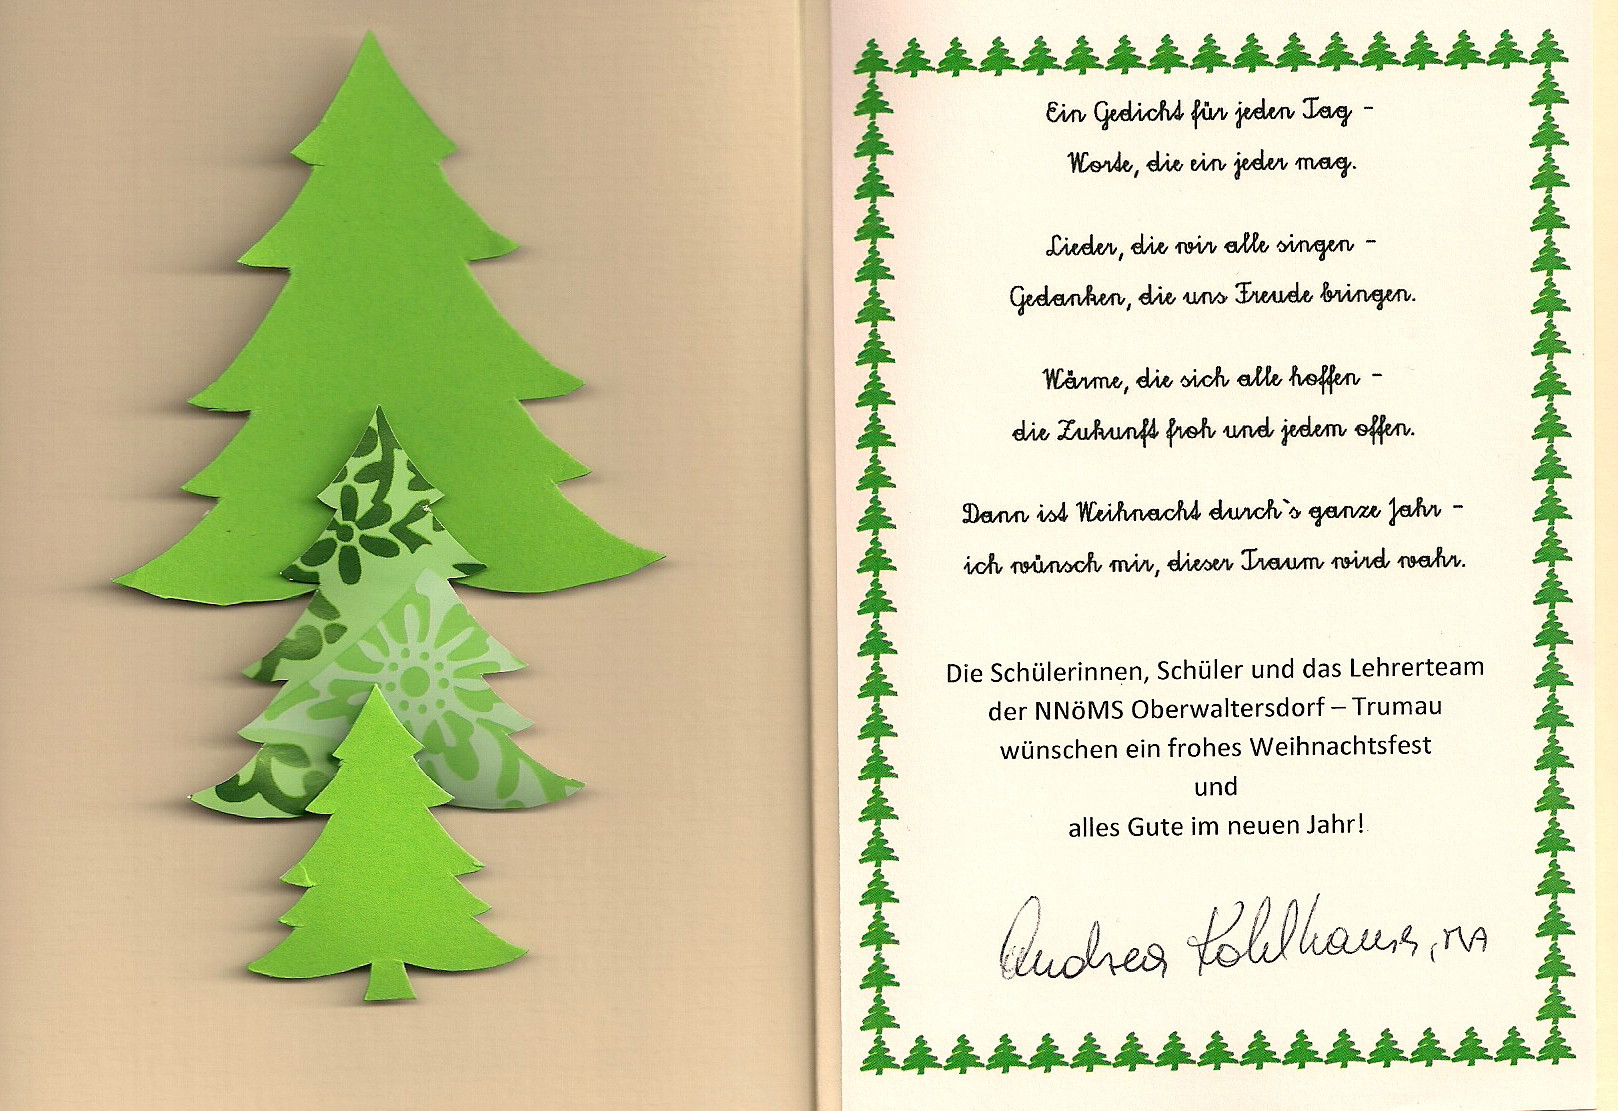 Ein Gedicht für jeden Tag -
Worte, die ein jeder mag.
Lieder, die wir alle singen -
Gedanken, die uns Freude bringen.
Wärme, die sich alle hoffen -
die Zukunft froh und jedem offen.
Dann ist Weihnacht durch`s ganze Jahr -
ich wünsch mir, dieser Traum wird wahr.
Die Schülerinnen, Schüler und das Lehrerteam
der NNöMS Oberwaltersdorf – Trumau
wünschen ein frohes Weihnachtsfest
und
alles Gute im neuen Jahr!
Andrea Kohlhauser, MA